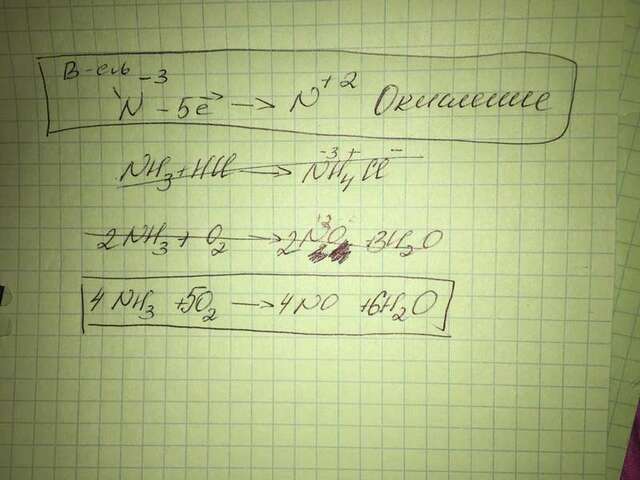 В-ель
N⁻³ - 5e⁻ → N⁺² Окисление
NH₃ + HCl → N⁻³H₄⁺Cl⁻
2NH₃ + O₂ → 2NO + 3H₂O
4NH₃ + 5O₂ → 4NO + 6H₂O